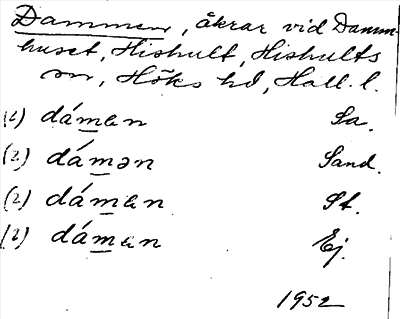 Dammen, åkrar vid Damm-
huset, Hishult, Hishults
sn, Höks hd, Hall. l.
(2) dáman Sa.
(2) dámən Sand.
(2) dáman St.
(2) dáman Ej.
1952